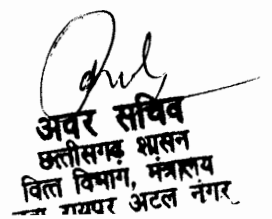 अवर सचिव
छत्तीसगढ़ शासन
वित्त विभाग, मंत्रालय
रायपुर अटल नगर